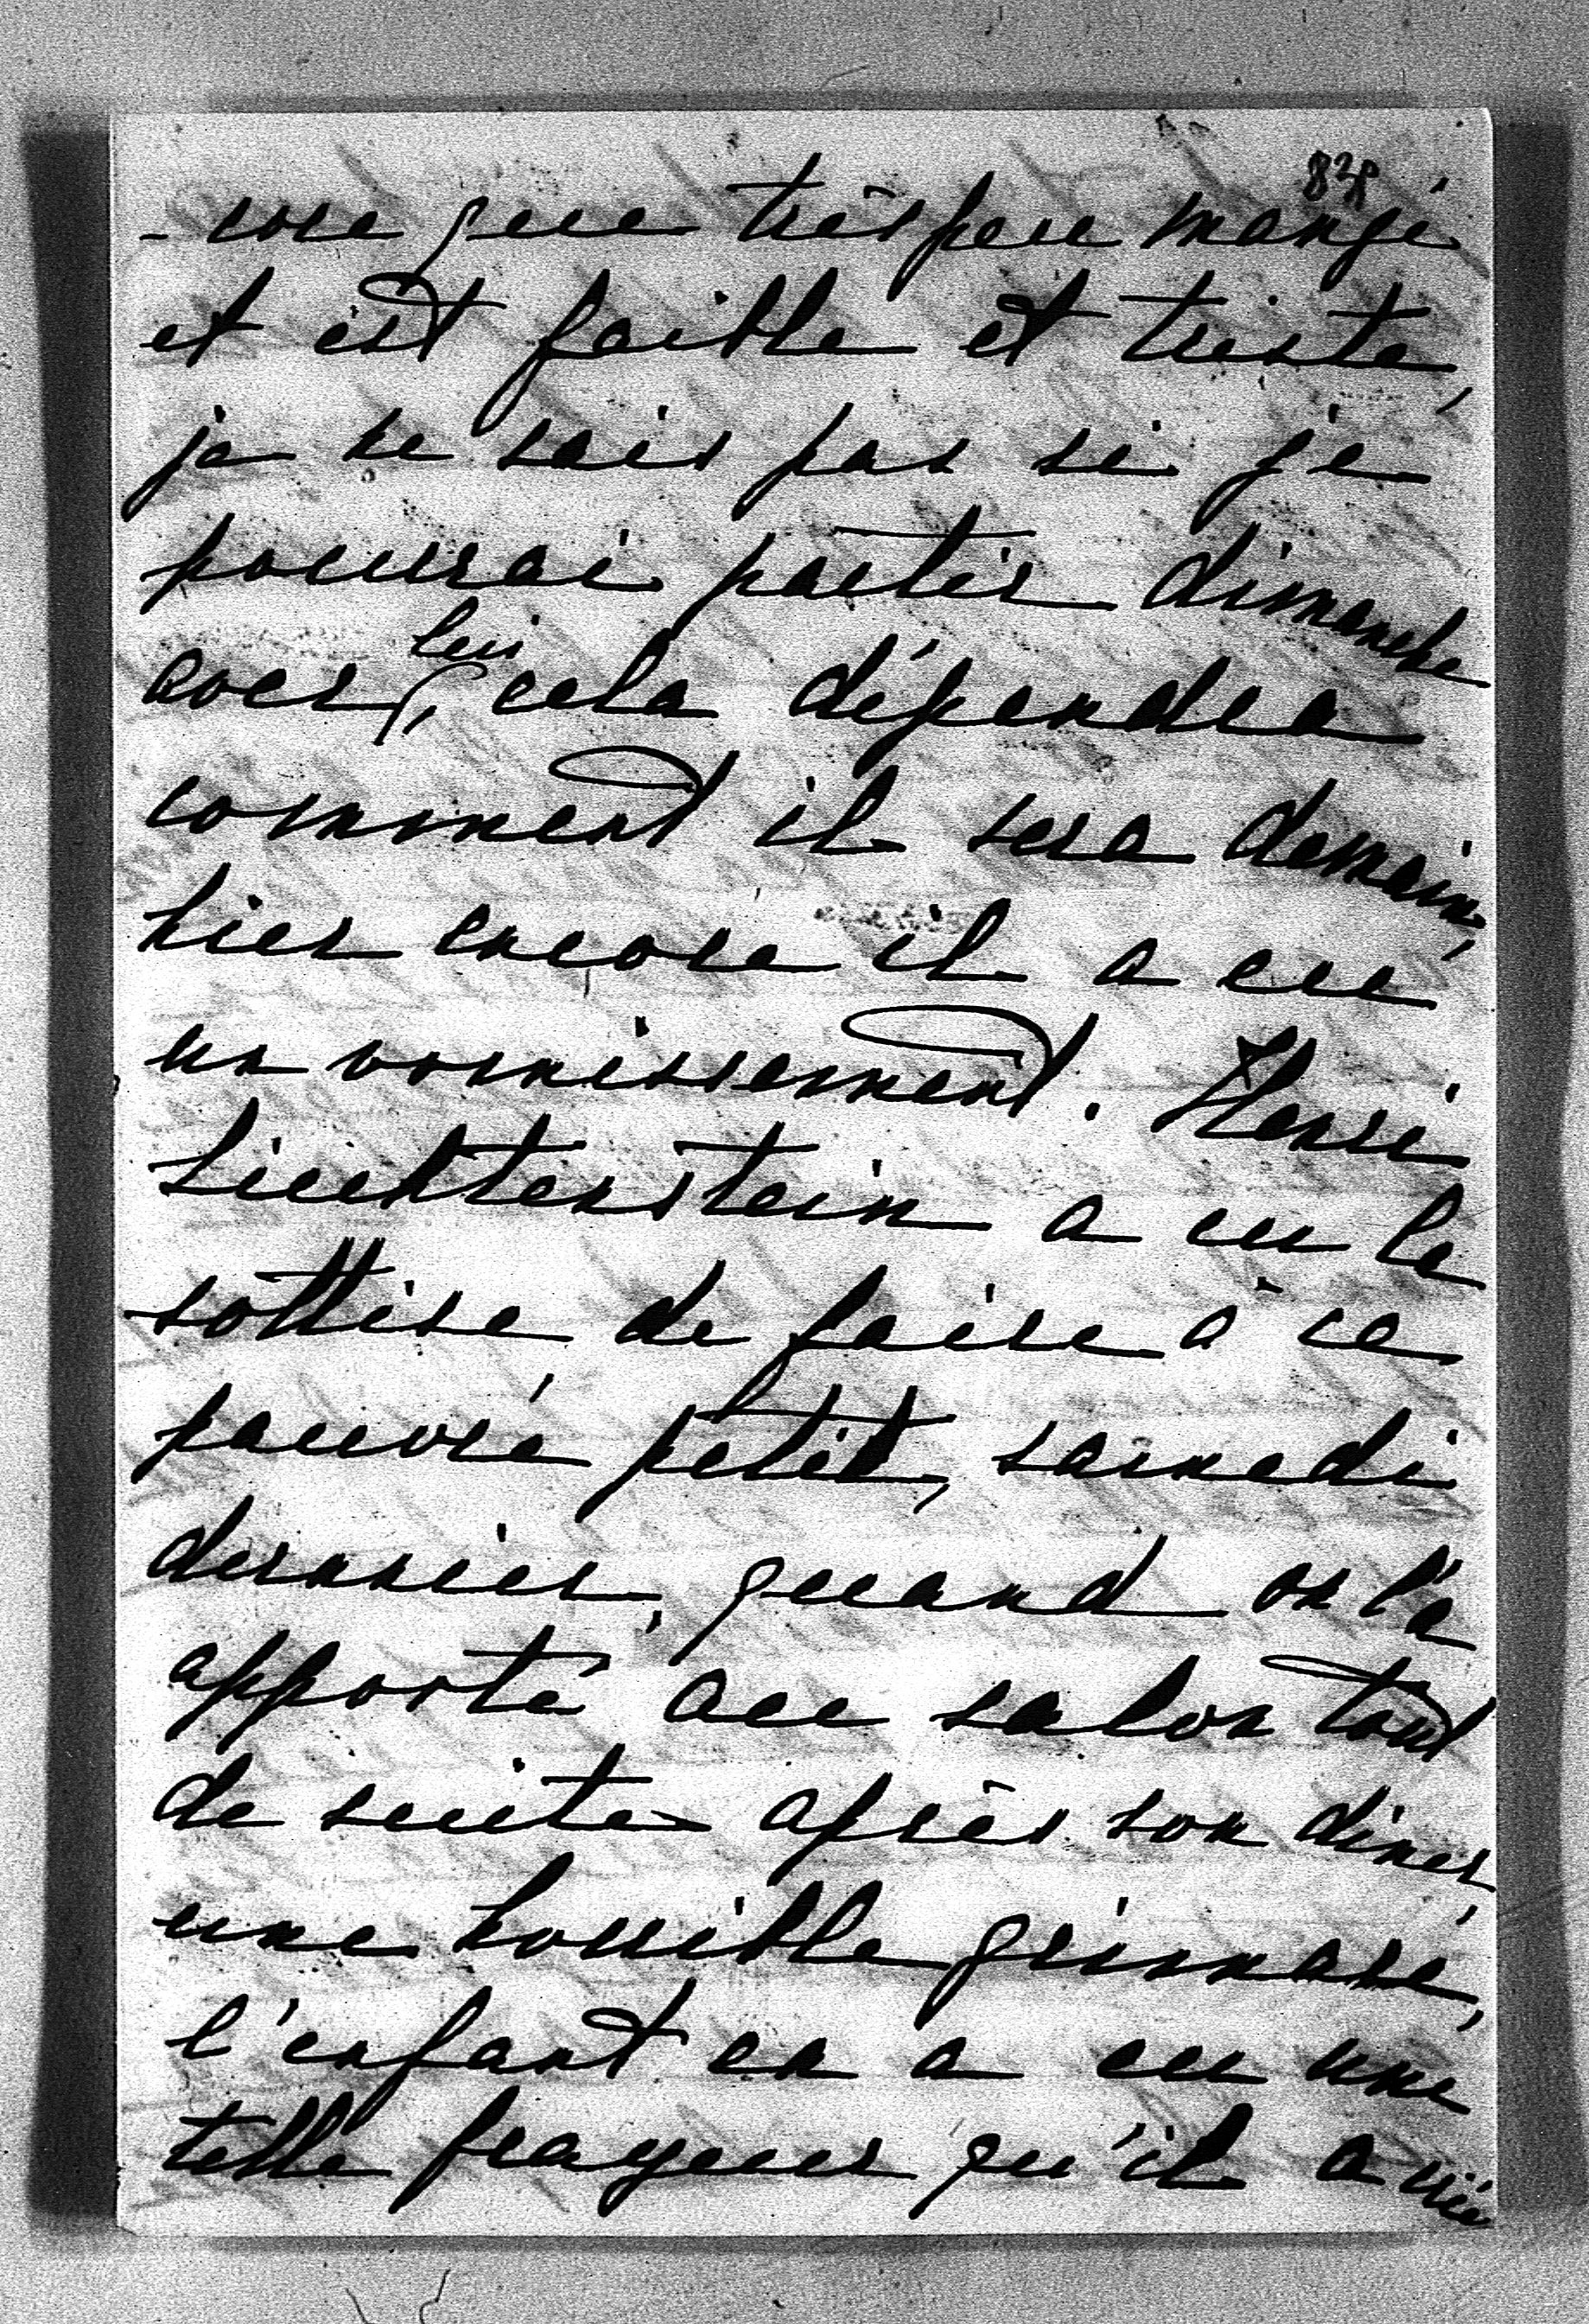 838
- core que très peu mangé
et est faible et triste,
je ne sais pas si je
pourrai partir dimanche
avec lui, cela dépendra
comment il sera demain,
hier encore il a eu
un vomissement. Henri
Liechtenstein a eu la
sottise de faire à ce
pauvre petit, samedi
dernier, quand on l'a
apporté au salon tout
de suite après son dîner,
une horrible grimace,
l'enfant en a eu une
telle frayeur qu'il a crié